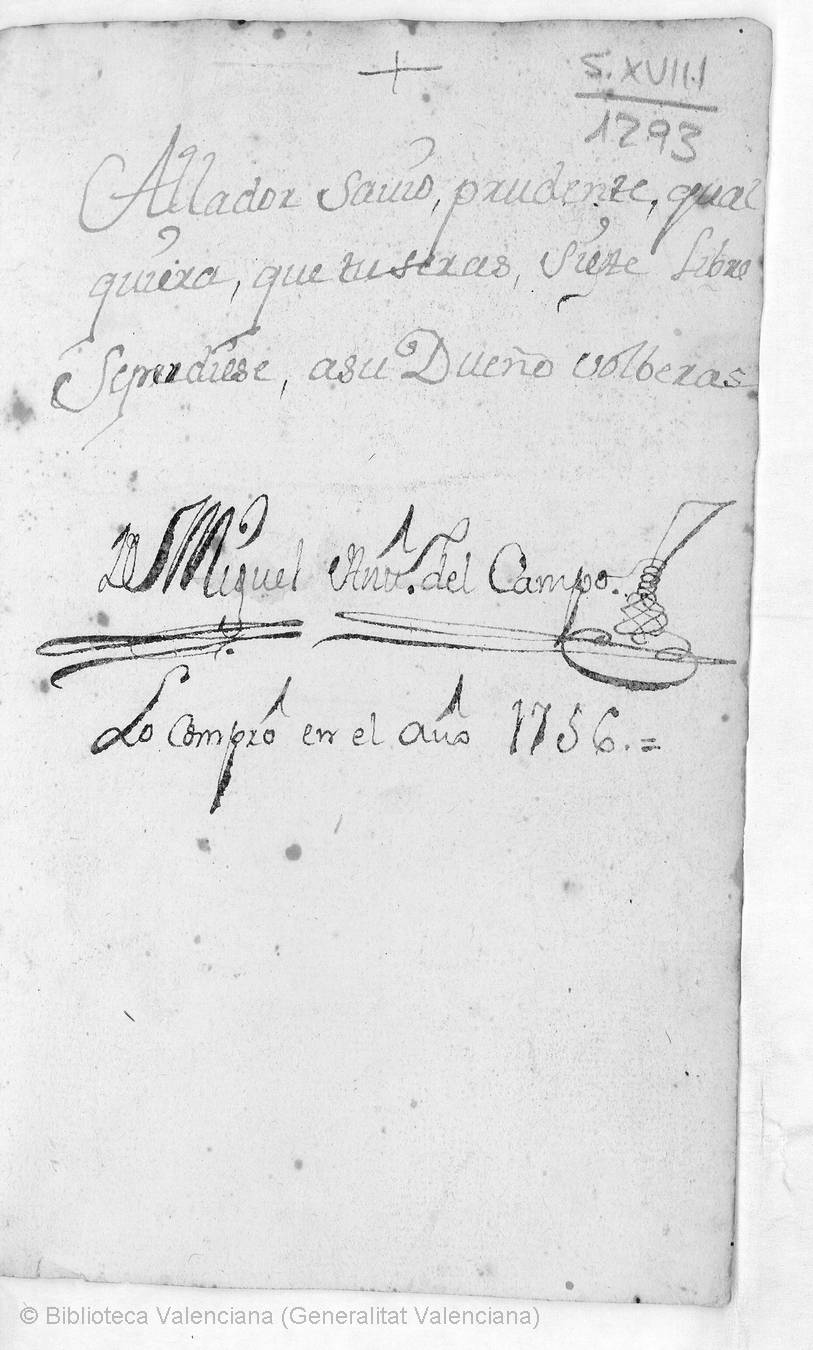 +
S. XVIII
1293
Allador Savio, prudente, qual
quiera, que tu seras, Siezte Libro
Seperdiese, asu Dueño volberas
De Miguel Antº. del Campo.
Lo compro en el año 1756.=
© Biblioteca Valenciana (Generalitat Valenciana)